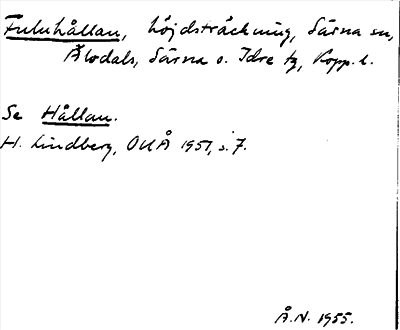 Fuluhållan, höjdsträckning, Särna sn,
Älvdals, Särna o. Idre tg, Kopp. l.
Se Hållan.
H. Lindberg, OUÅ 1951, s. 7.
Å.N. 1955.